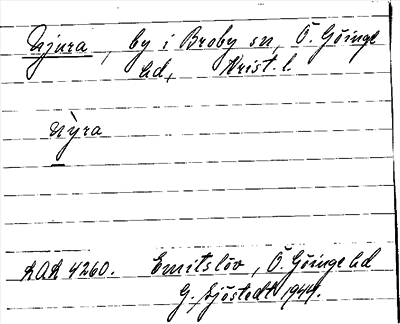 Njura, by i Broby sn, Ö. Göinge
hd, Krist. l.
Nỳra
LAL 4260. Emitslöv, Ö. Göinge hd
G. Sjöstedt 1944.